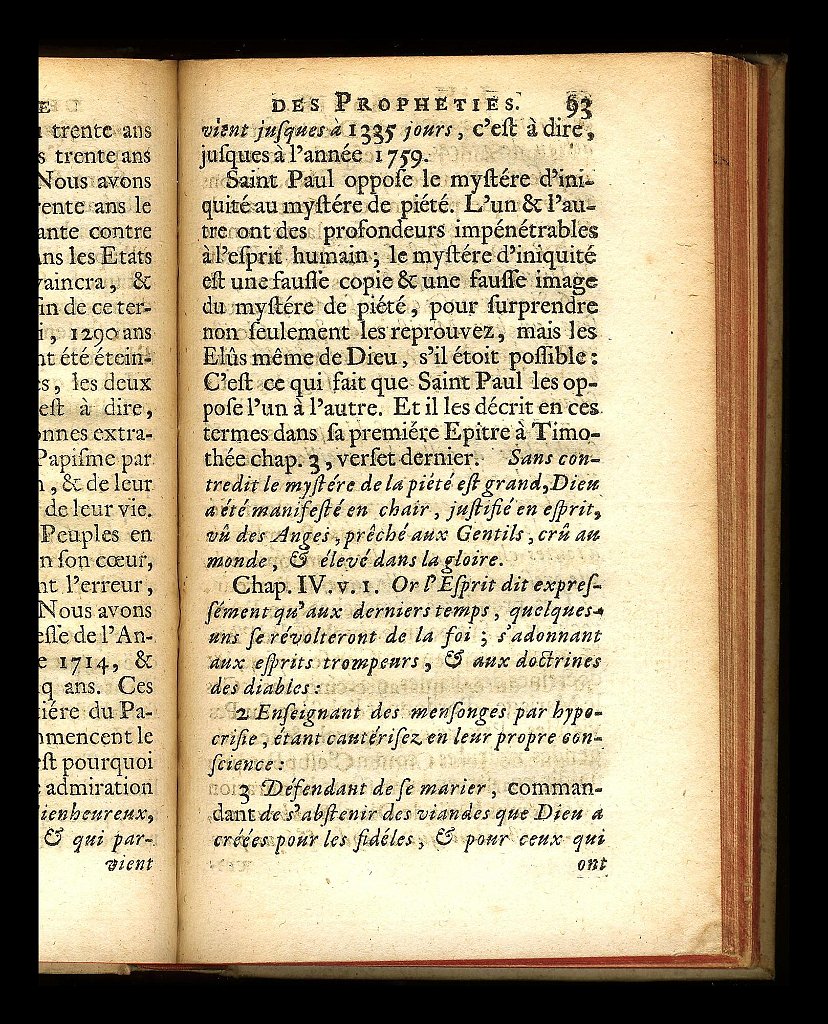 E
trente ans
s trente ans
Nous avons
rente ans le
ante contre
ans les Etats
vaincra, &
fin de ce ter-
i, 1290 ans
nt été étein-
es, les deux
eſt à dire,
onnes extra-
Papiſme par
n, & de leur
de leur vie.
Peuples en
n ſon cœur,
nt l'erreur,
Nous avons
eſſe de l'An-
e 1714, &
q ans. Ces
tiére du Pa-
mmencent le
ſt pourquoi
admiration
ienheureux,
& qui par-
vient
DES PROPHETIES. 93
vient juſques à 1335 jours, c'eſt à dire,
juſques à l'année 1759.
Saint Paul oppoſe le myſtére d'ini-
quité au myſtére de piété. L'un & l'au-
tre ont des profondeurs impénétrables
à l'eſprit humain; le myſtére d'iniquité
eſt une fauſſe copie & une fauſſe image
du myſtére de piété, pour ſurprendre
non ſeulement les reprouvez, mais les
Elûs même de Dieu, s'il étoit poſſible:
C'eſt ce qui fait que Saint Paul les op-
poſe l'un à l'autre. Et il les décrit en ces
termes dans ſa premiére Epitre à Timo-
thée chap. 3, verſet dernier. Sans con-
tredit le myſtére de la piété eſt grand, Dieu
a été manifeſté en chair, juſtifié en eſprit,
vû des Anges, prêché aux Gentils, crû au
monde, & élevé dans la gloire.
Chap. IV. v. 1. Or l'Eſprit dit expreſ-
ſément qu'aux derniers temps, quelques-
uns ſe révolteront de la foi; s'adonnant
aux eſprits trompeurs, & aux doctrines
des diables:
2 Enſeignant des menſonges par hypo-
criſie, étant cautériſez en leur propre con-
ſcience:
3 Défendant de ſe marier, comman-
dant de s'abſtenir des viandes que Dieu a
créées pour les fidéles, & pour ceux qui
ont